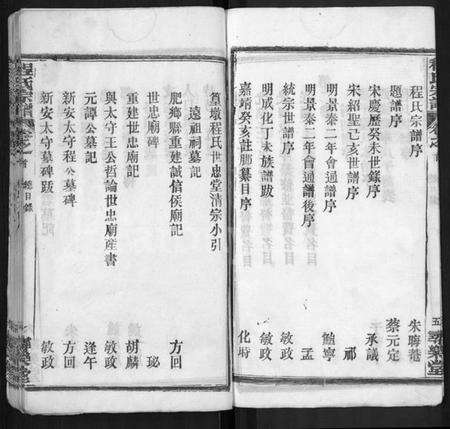 程氏宗譜序 朱晦菴
題譜序 蔡元定
宋慶歷癸未世錄序 承議
宋紹聖己亥世譜序 祁
明景泰二年會通譜序 鮑寧
明景泰二年會通譜後序 孟
明成化丁未族譜跋 敏政
統宗世譜序 敏政
嘉靖癸亥註腳纂目序 化時
五
程氏宗譜
首 總目錄
篁墩程氏世忠堂清宗小引
遠祖祠墓記
肥鄉縣重建誠信侯廟記 方回
世忠廟碑 珌
重建世忠廟記 胡麟
與太守王公哲論世忠廟産書 敏政
元譚公墓記 逢午
新安太守程公墓碑 方回
新安太守墓碑跋 敏政